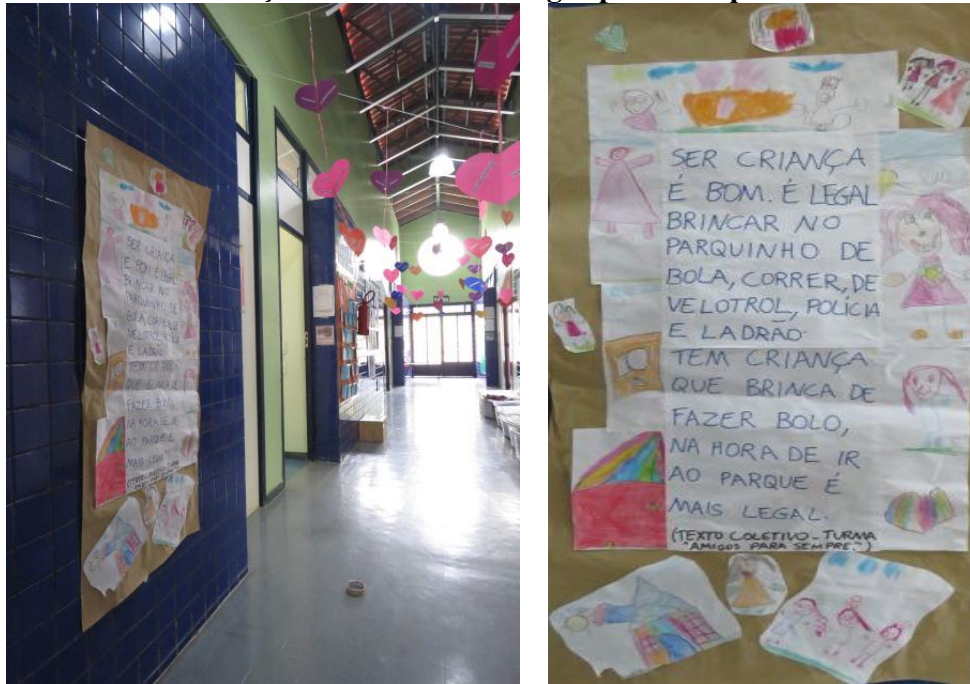 SER CRIANÇA
É BOM. É LEGAL
BRINCAR NO
PARQUINHO DE
BOLA, CORRER, DE
VELOTROL, POLÍCIA
E LADRAO
TEM CRIANÇA
QUE BRINCA DE
FAZER BOLO,
NA HORA DE IR
AO PARQUE É
MAIS LEGAL.
(TEXTO COLETIVO - TURMA
"AMIGOS PARA SEMPRE")